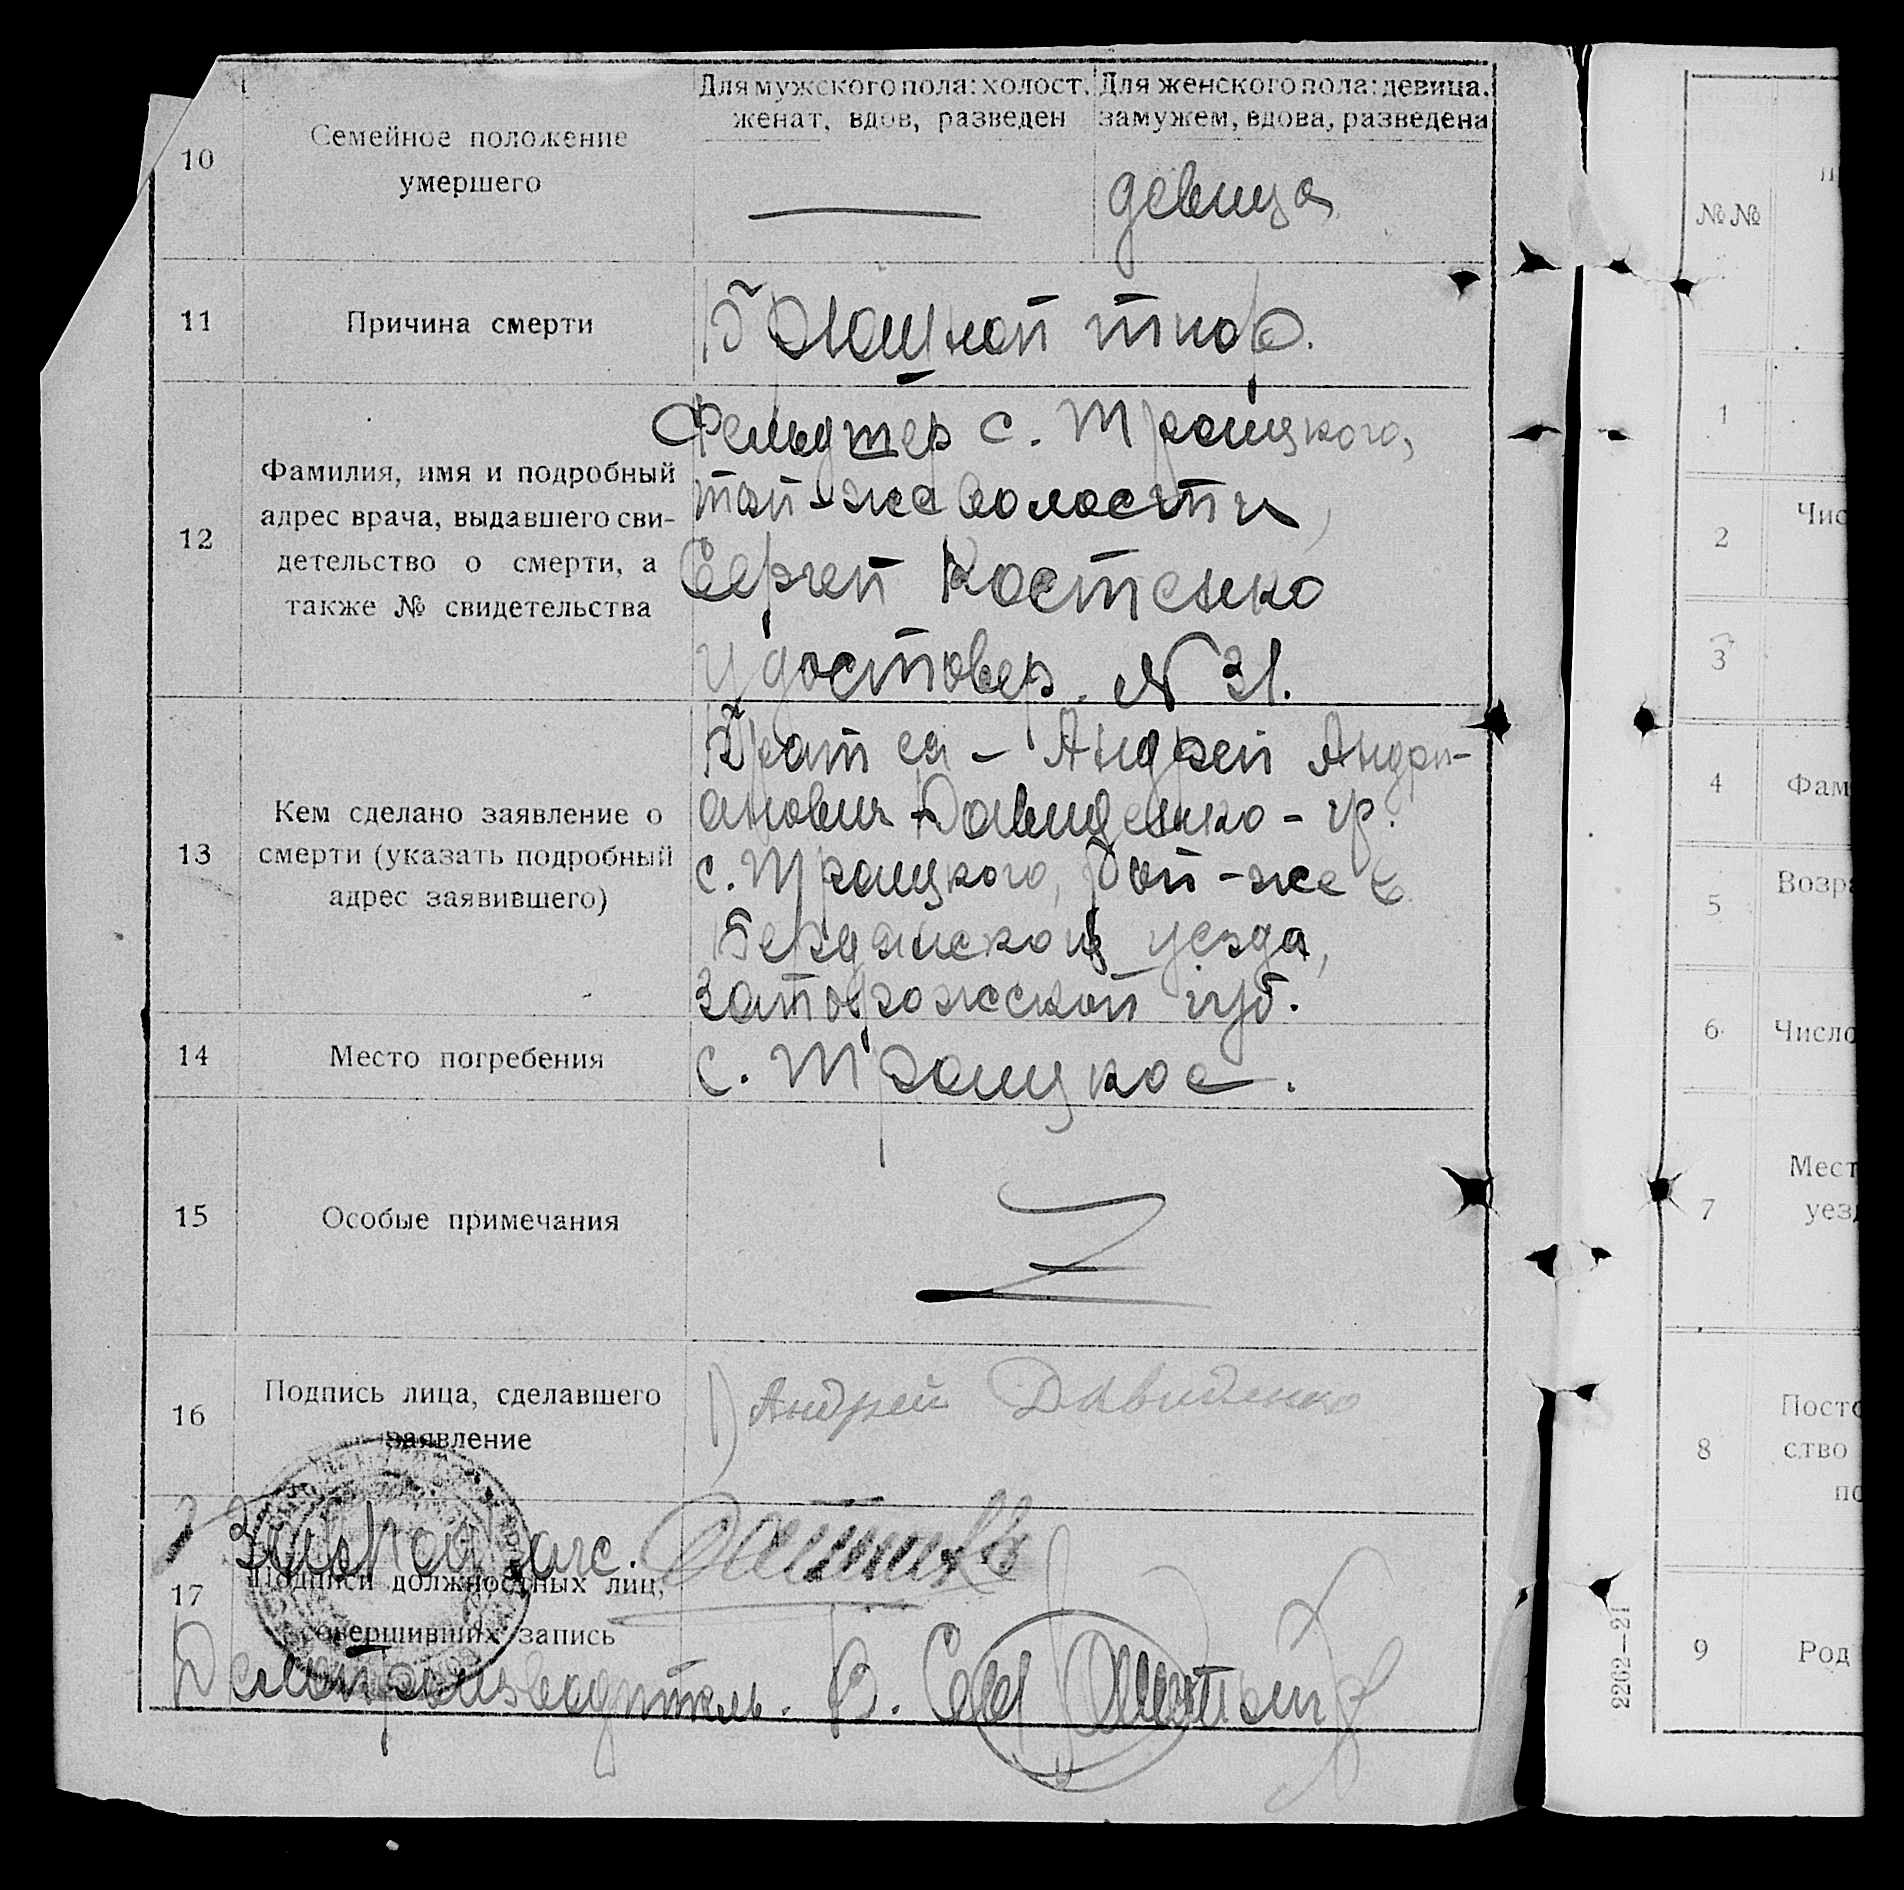 Для мужского пола: холост, женат, вдов, разведен
Для женского пола: девица, замужем, вдова, разведена
10
Семейное положение
умершего
девица
11
Причина смерти
Брюшной тиф.
12
Фамилия, имя и подробный
адрес врача, выдавшего сви-
детельство о смерти, а
также № свидетельства
Фельдшер с. Троицкого,
той-же волости,
Сергей Костенко
Удостовер. № 31.
13
Кем сделано заявление о
смерти (указать подробный
адрес заявившего)
Брат ея – Андрей Андри-
анович Давиденко – гр.
с. Троицкого, той-же в.
Бердянского уезда,
Запорожской губ.
14
Место погребения
с. Троицкое.
15
Особые примечания
16
Подпись лица, сделавшего
заявление
1) Андрей Давиденко
Загс.
17
Подписи должностных лиц,
совершивших запись
Делопроизводитель. В.
№№
1
2
Чис
3
4
Фам
5
Возра
6
Число
7
Мест
уез
8
Посто
ство
по
9
Род
2262—21